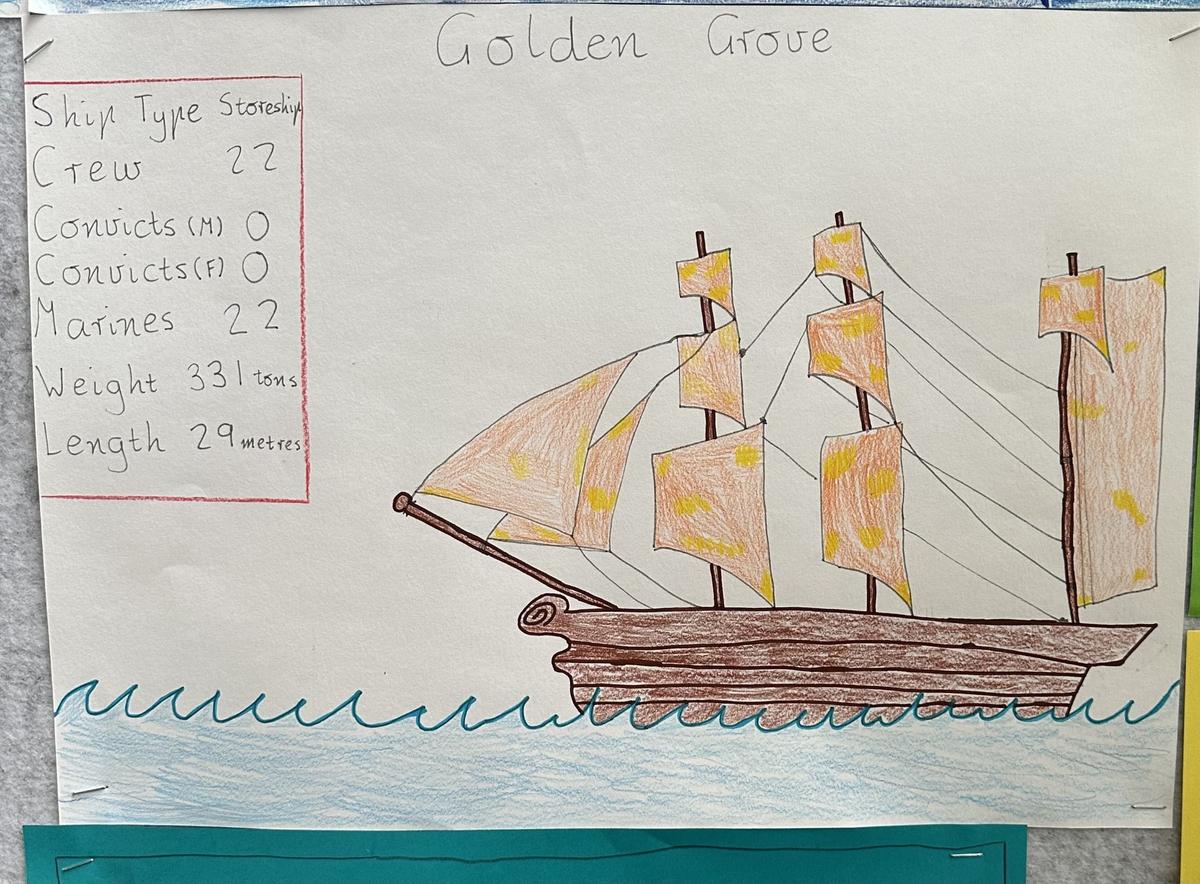 Golden Grove
Ship Type Storeship
Crew 22
Convicts (M) 0
Convicts (F) 0
Marines 22
Weight 331 tons
Length 29 metres